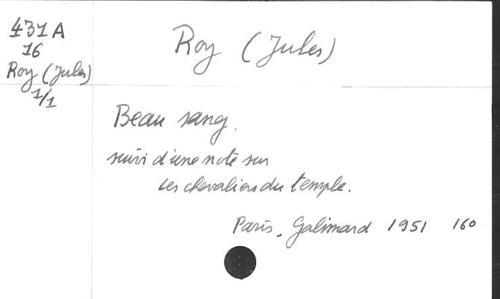 431A
16
Roy (Jules)
1/1
Roy (Jules)
Beau sang.
suivi d'une note sur
les chevaliers du temple.
Paris, Galimard 1951 160